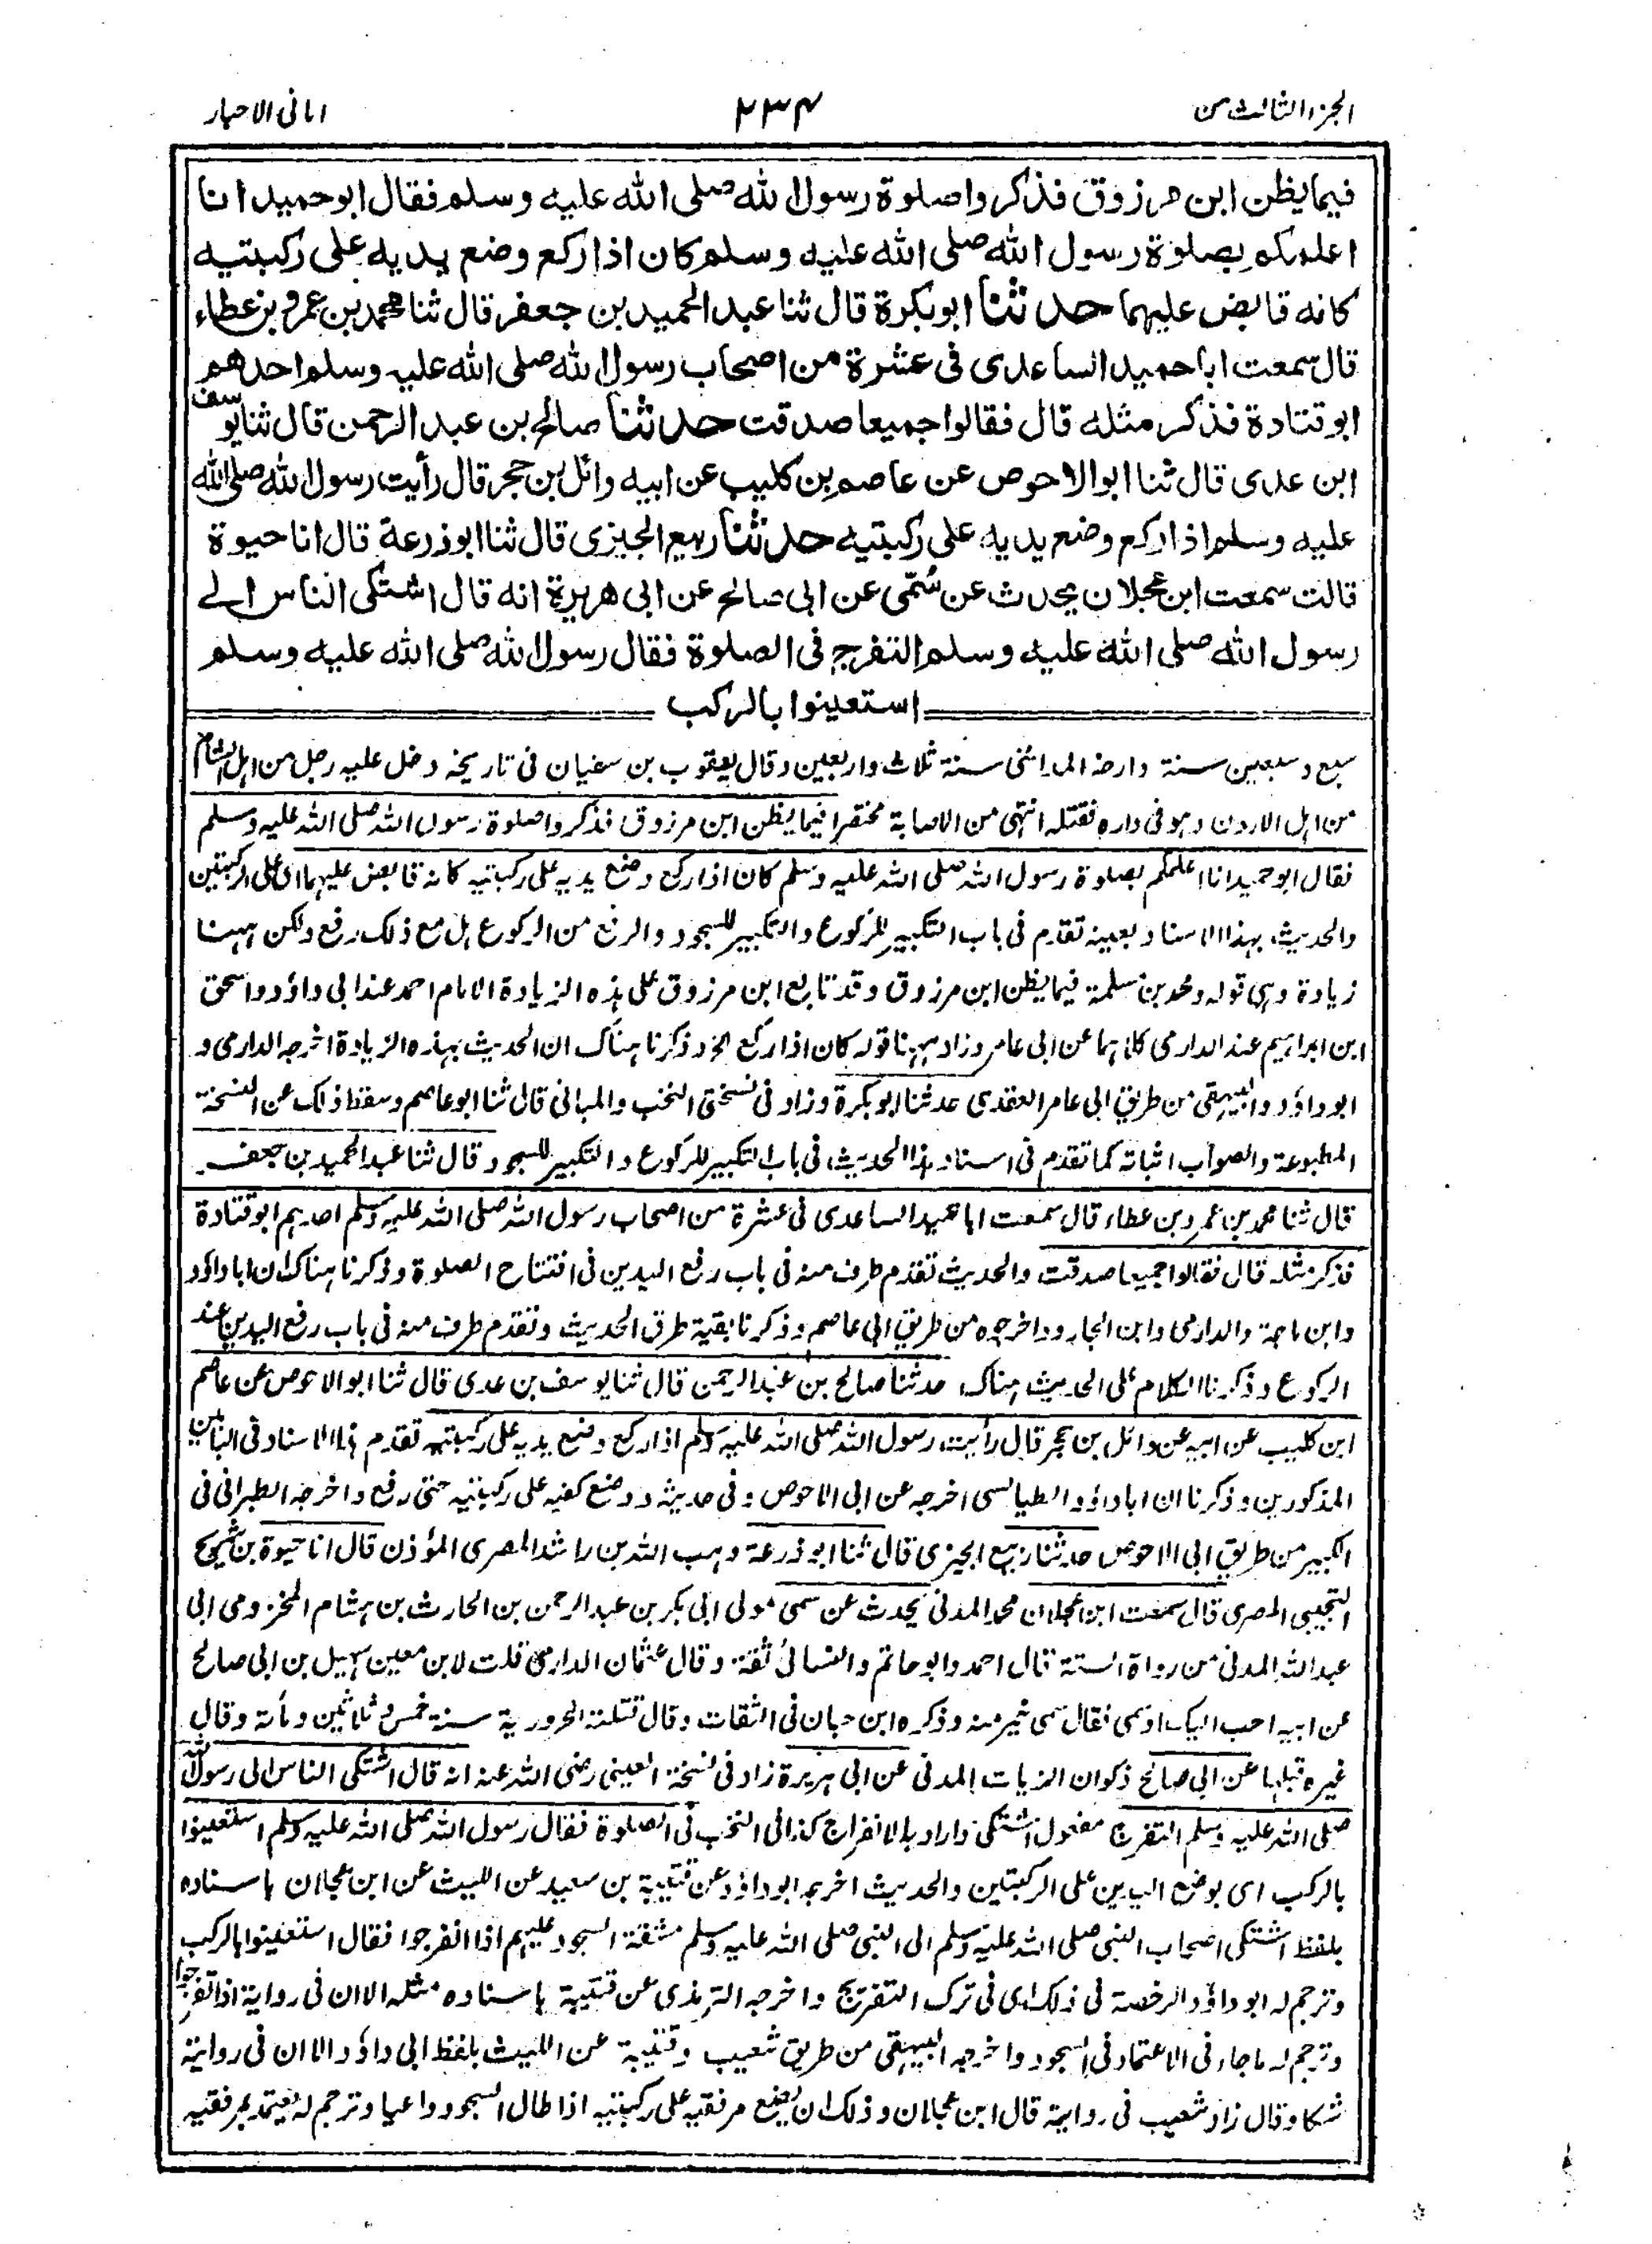 الجزء الثالث من
۲۳۴
امانی الاحبار
فیما یظن ابن مرزوق فذکروا صلوة رسول الله صلی الله علیه وسلم فقال ابو حمید انا
اعلمکم بصلوة رسول الله صلی الله علیه وسلم کان اذا رکع وضع یدیه علی رکبتیه
کانه قابض علیهما حدثنا ابو بکرة قال ثنا عبد الحمید بن جعفر قال ثنا محمد بن عمرو بن عطاء
قال سمعت ابا حمید الساعدی فی عشرة من اصحاب رسول الله صلی الله علیه وسلم احدهم
ابو قتادة فذکر مثله قال فقالوا جمیعا صدقت حدثنا صالح بن عبد الرحمن قال ثنا یوسف
ابن عدی قال ثنا ابو الاحوص عن عاصم بن کلیب عن ابیه وائل بن حجر قال رأیت رسول الله صلی الله
علیه وسلم اذا رکع وضع یدیه علی رکبتیه حدثنا ربیع الجیزی قال ثنا ابو ذرعة قال انا حیوة
قالت سمعت ابن عجلان یحدث عن سُمّی عن ابی صالح عن ابی هریرة انه قال اشتکی الناس الے
رسول الله صلی الله علیه وسلم التفرج فی الصلوة فقال رسول الله صلی الله علیه وسلم
استعینوا بالرکب
سبع وسبعین سنة وارخه المدائنی سنة ثلاث واربعین وقال یعقوب بن سفیان فی تاریخه دخل علیه رجل من اهل الشام
من اهل الاردن وهو فی داره فقتله انتهی من الاصابة مختصرا فیما یظن ابن مرزوق فذکروا صلوة رسول الله صلی الله علیه وسلم
فقال ابو حمید انا اعلمکم بصلوة رسول الله صلی الله علیه وسلم کان اذا رکع وضع یدیه علی رکبتیه کانه قابض علیهما ای علی الرکبتین
والحدیث بهذا الاسناد بعینه تقدم فی باب التکبیر للرکوع والتکبیر للسجود والرفع من الرکوع هل مع ذلک رفع ولکن ههنا
زیادة وهی قوله ومحمد بن سلمة فیما یظن ابن مرزوق وقد تابع ابن مرزوق علی هذه الزیادة الامام احمد عند ابی داؤد واسحق
ابن ابراهیم عند الدارمی کلاهما عن ابی عامر وزاد ههنا قوله کان اذا رکع الخ وذکرنا هناک ان الحدیث بهذه الزیادة اخرجه الدارمی و
ابو داؤد والبیهقی من طریق ابی عامر العقدی حدثنا ابو بکرة وزاد فی نسختی النخب والمبانی قال ثنا ابو عاصم وسقط ذلک عن النسخة
المطبوعة والصواب اثباته کما تقدم فی اسناد هذا الحدیث فی باب التکبیر للرکوع والتکبیر للسجود قال ثنا عبد الحمید بن جعفر
قال ثنا محمد بن عمرو بن عطاء قال سمعت ابا حمید الساعدی فی عشرة من اصحاب رسول الله صلی الله علیه وسلم احدهم ابو قتادة
فذکر مثله قال فقالوا جمیعا صدقت والحدیث تقدم طرف منه فی باب رفع الیدین فی افتتاح الصلوة وذکرنا هناک ان ابا داؤد
وابن ماجة والدارمی وابن الجارود اخرجوه من طریق ابی عاصم وذکرنا بقیة طرق الحدیث وتقدم طرف منه فی باب رفع الیدین عند
الرکوع وذکرنا الکلام علی الحدیث هناک حدثنا صالح بن عبد الرحمن قال ثنا یوسف بن عدی قال ثنا ابو الاحوص عن عاصم
ابن کلیب عن ابیه عن وائل بن حجر قال رأیت رسول الله صلی الله علیه وسلم اذا رکع وضع یدیه علی رکبتیه تقدم هذا الاسناد فی البابین
المذکورین وذکرنا ان ابا داؤد الطیالسی اخرجه عن ابی الاحوص وفی حدیثه ووضع کفیه علی رکبتیه حتی رفع واخرجه الطبرانی فی
الکبیر من طریق ابی الاحوص حدثنا ربیع الجیزی قال ثنا ابو ذرعة وهب الله بن راشد المصری المؤذن قال انا حیوة بن شریح
التجیبی المصری قال سمعت ابن عجلان محمد المدنی یحدث عن سمی مولی ابی بکر بن عبد الرحمن بن الحارث بن هشام المخزومی ابی
عبد الله المدنی من رواة الستة قال احمد وابو حاتم والنسائی ثقة وقال عثمان الدارمی قلت لابن معین سهیل بن ابی صالح
عن ابیه احب الیک او سمی فقال سمی خیر منه وذکره ابن حبان فی الثقات وقال قتلته الحروریة سنة خمس وثلاثین ومأة وقال
غیره قبلها عن ابی صالح ذکوان الزیات المدنی عن ابی هریرة زاد فی نسخة العینی رضی الله عنه انه قال اشتکی الناس الی رسول الله
صلی الله علیه وسلم التفرج مفعول اشتکی واراد به الانفراج کذا فی النخب فی الصلوة فقال رسول الله صلی الله علیه وسلم استعینوا
بالرکب ای بوضع الیدین علی الرکبتین والحدیث اخرجه ابو داؤد عن قتیبة بن سعید عن اللیث عن ابن عجلان باسناده
بلفظ اشتکی اصحاب النبی صلی الله علیه وسلم الی النبی صلی الله علیه وسلم مشقة السجود علیهم اذا انفرجوا فقال استعینوا بالرکب
وترجم له ابو داؤد الرخصة فی ذلک ای فی ترک التفریج واخرجه الترمذی عن قتیبة باسناده مثله الا ان فی روایة اذا تفرجوا
وترجم له ما جاء فی الاعتماد فی السجود واخرجه البیهقی من طریق شعیب وقتیبة عن اللیث بلفظ ابی داؤد الا ان فی روایة
شکا وقال زاد شعیب فی روایة قال ابن عجلان وذلک ان یضع مرفقیه علی رکبتیه اذا طال السجود واعیا وترجم له یعتمد بمرفقیه